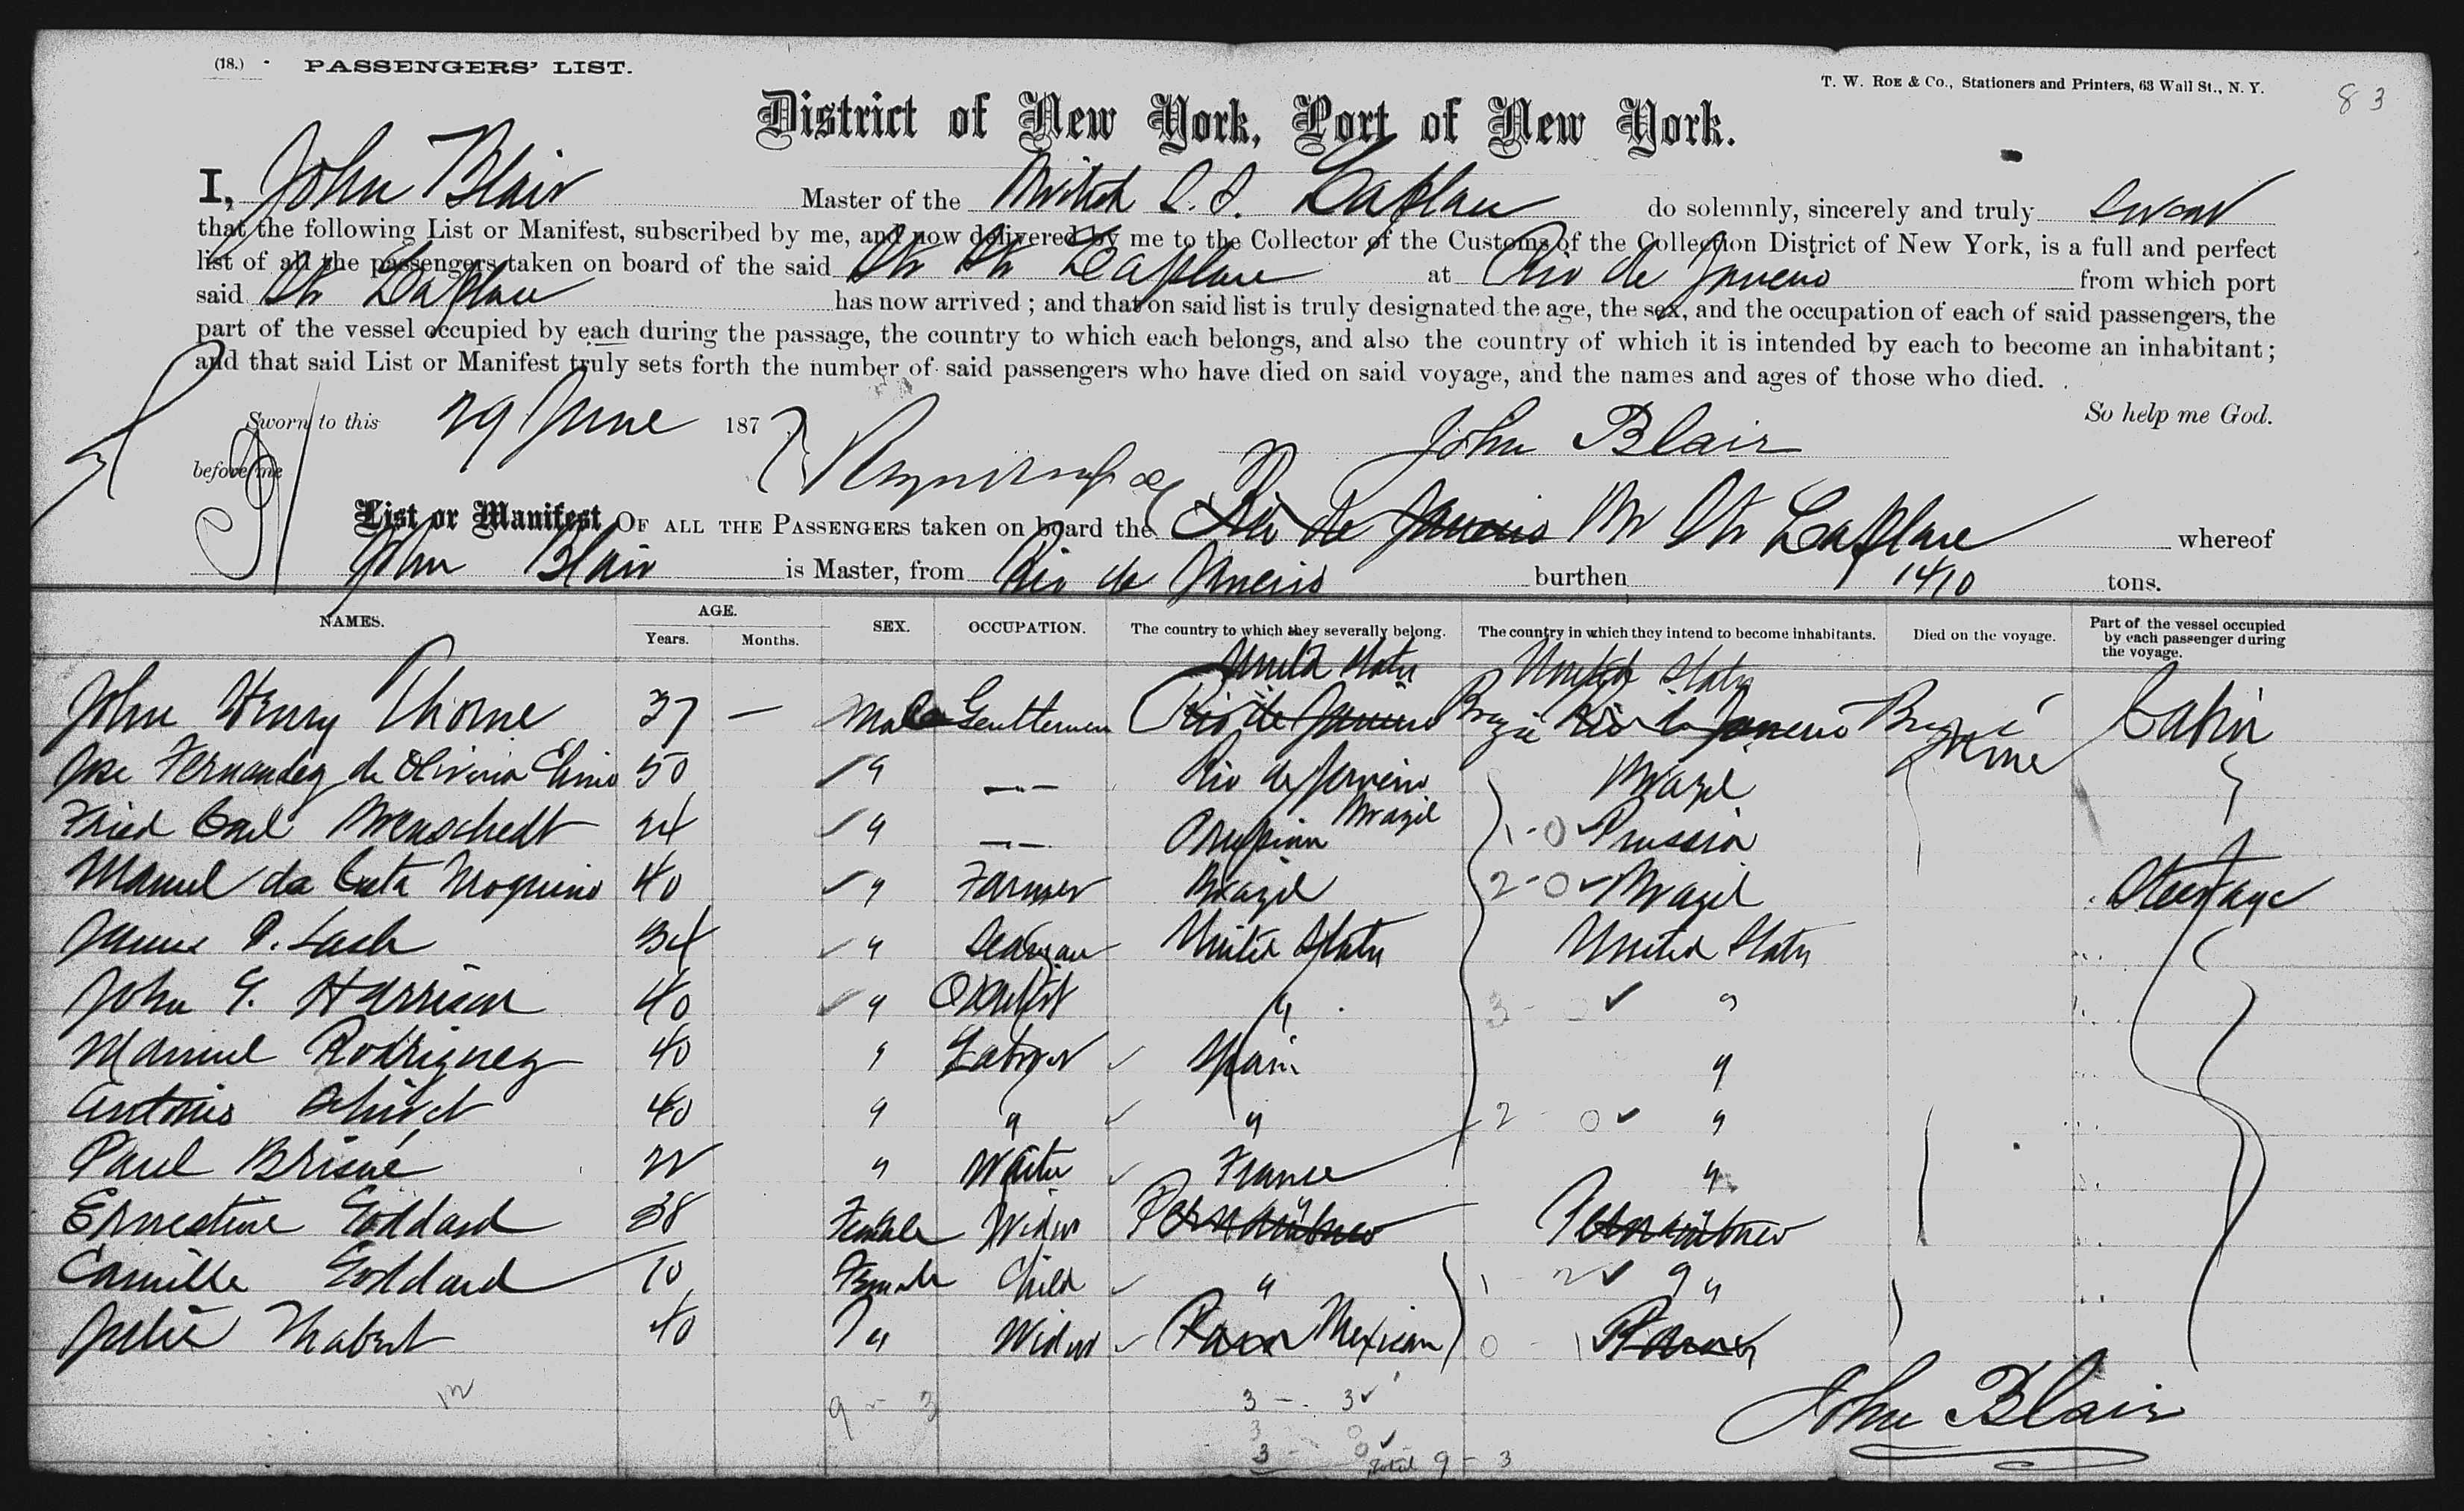 (18.) PASSENGERS' LIST.
T. W. ROE & Co., Stationers and Printers, 63 Wall St., N. Y.
83
District of New York, Port of New York.
I, John Blair Master of the British S. S. Laplace do solemnly, sincerely and truly swear
that the following List or Manifest, subscribed by me, and now delivered by me to the Collector of the Customs of the Collection District of New York, is a full and perfect
list of all the passengers taken on board of the said Str Laplace at Rio de Janeiro from which port
said Str Laplace has now arrived ; and that on said list is truly designated the age, the sex, and the occupation of each of said passengers, the
part of the vessel occupied by each during the passage, the country to which each belongs, and also the country of which it is intended by each to become an inhabitant;
and that said List or Manifest truly sets forth the number of said passengers who have died on said voyage, and the names and ages of those who died.
So help me God.
Sworn to this 29 June 187
John Blair
before me
List or Manifest OF ALL THE PASSENGERS taken on board the Rio de Janeiro Br Str Laplace whereof
John Blair is Master, from Rio de Janeiro burthen 1410 tons.
NAMES. AGE. Years. Months. SEX. OCCUPATION. The country to which they severally belong. The country in which they intend to become inhabitants. Died on the voyage. Part of the vessel occupied by each passenger during the voyage.
United States United States
John Henry Thorne 37 — Male Gentleman Rio de Janeiro Brazil Rio de Janeiro Brazil None Cabin
Jose Fernandez de Oliveira 50 " -- Rio de Janeiro Brazil Brazil
Fried Carl 24 " -- Prussian 1-0 Prussia
Manuel da Costa 40 " Farmer Brazil 2-0 Brazil Steerage
James P. Lash 34 " Seaman United States United States
John G. Harrison 40 " Dentist " 3 - 0 "
Manuel Rodriguez 40 " Laborer Spain "
Antonio 40 " " " 2 - 0 "
Paul Briané 22 " Waiter France "
Ernestine Goddard 38 Female Widow Pernambuco Pernambuco
Camille Goddard 10 Female Child " 1 - 2 " "
Julie 40 " Widow Mexican 0 - 1
12 9 - 3 3 - 3
3 0
3 - 0
Total 9 - 3
John Blair